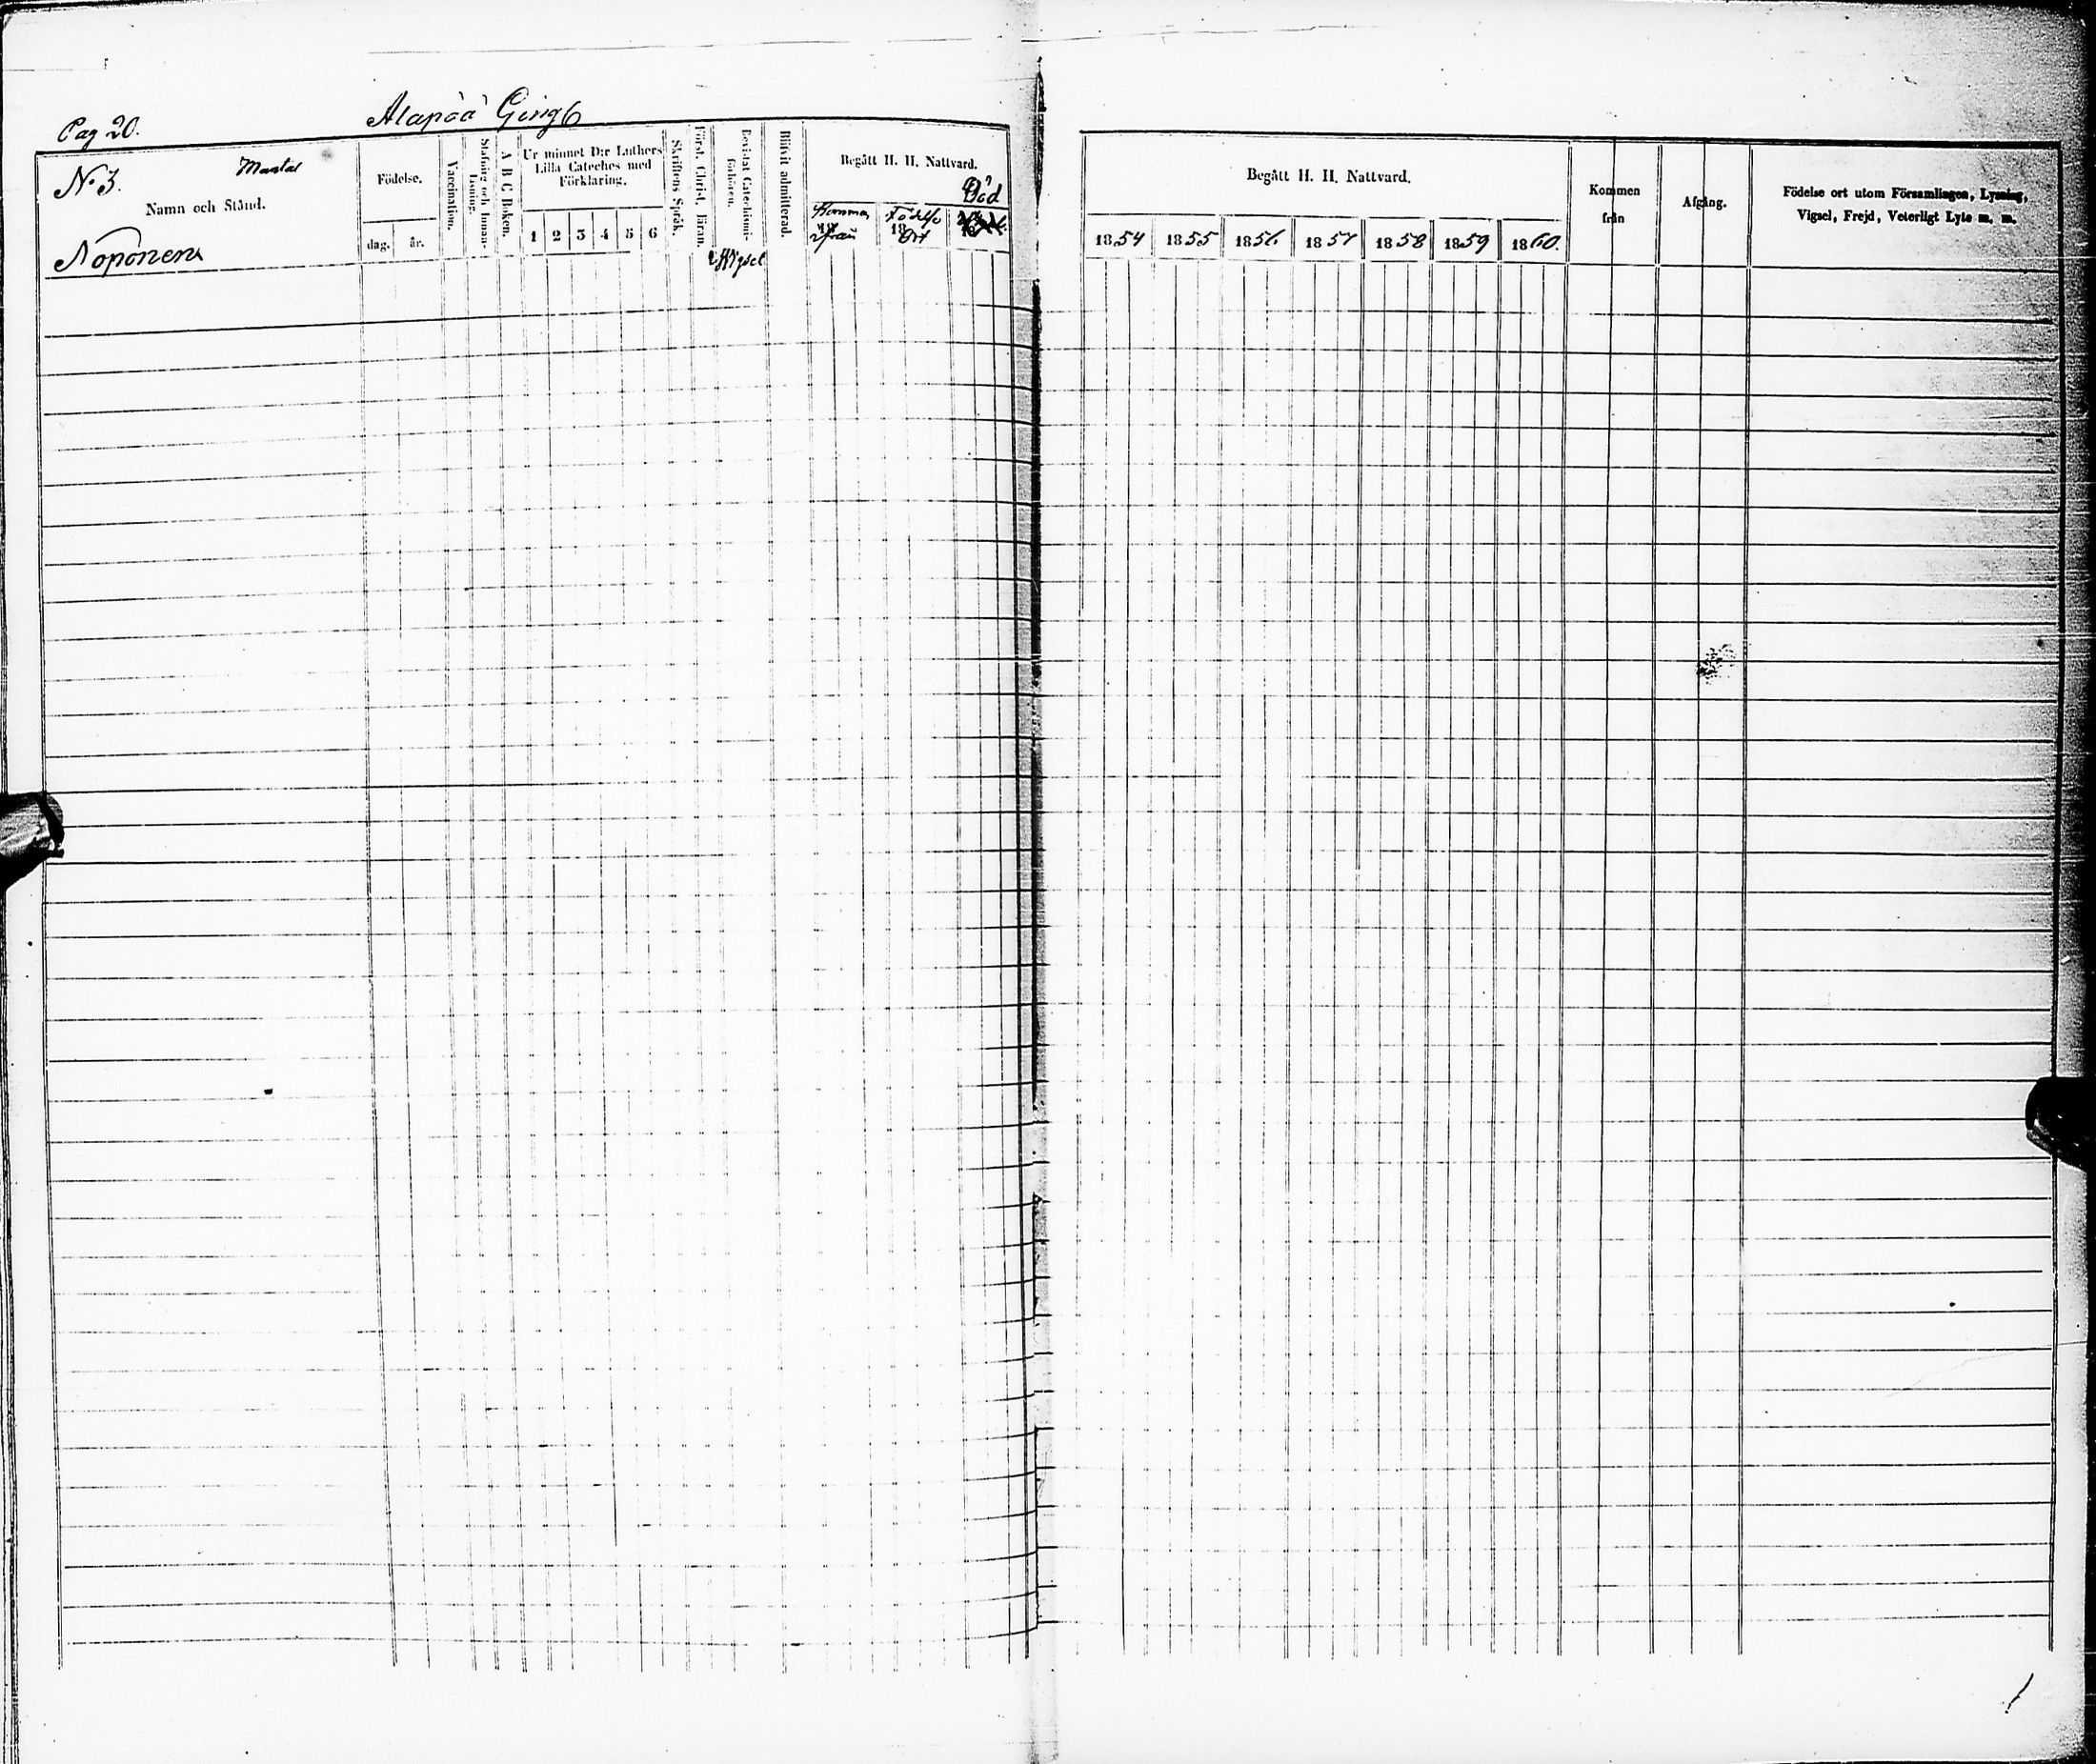 Pag 20.
Alapää
N:o 3.
Mantal
Namn och Stånd.
Noponen
Födelse.
dag. år.
Vaccination.
Stafning och Innan-
läsning.
A B C Boken.
Ur minnet D:r Luthers
Lilla Cateches med
Förklaring.
1 2 3 4 5 6
Skriftens Språk.
Först. Christ. läran.
Bevistat Catechismi-
förhören.
Wigsel
Blifvit admitterad.
Begått H. H. Nattvard.
Kommen
från
18
Födelse
Ort
18
Död
Begått H. H. Nattvard.
1854 1855 1856. 1857 1858 1859 1860.
Kommen
från
Afgång.
Födelse ort utom Församlingen, Lysning,
Vigsel, Frejd, Veterligt Lyte m. m.